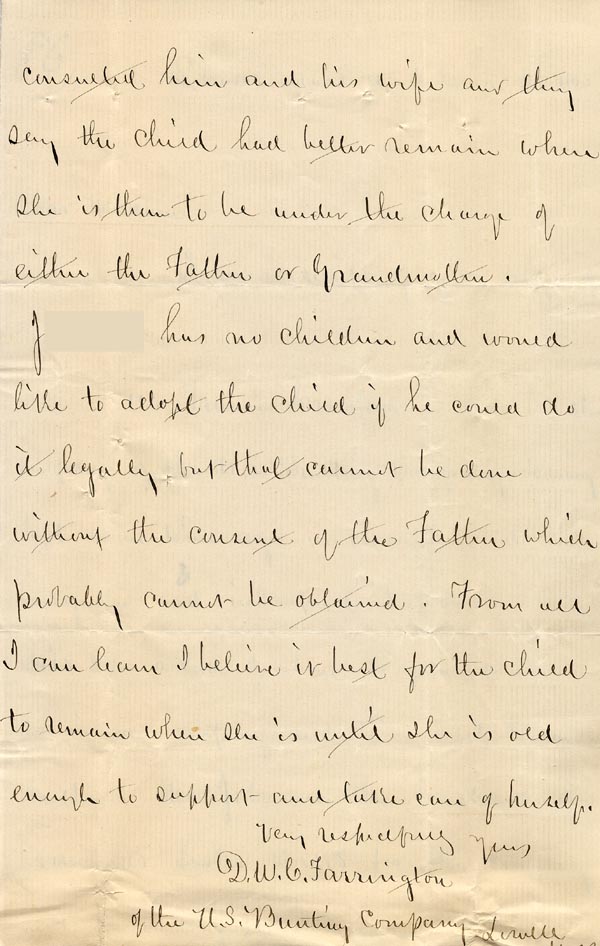 consulted him and his wife and they
say the child had better remain where
she is than to be under the charge of
either the Father or Grandmother.
J has no children and would
like to adopt the child if he could do
it legally, but that cannot be done
without the consent of the Father which
probably cannot be obtained. From all
I can learn I believe it best for the child
to remain where she is until she is old
enough to support and take care of herself.
Very respectfully Yours
D.W.C. Farrington
of the U.S. Bunting Company Lowell